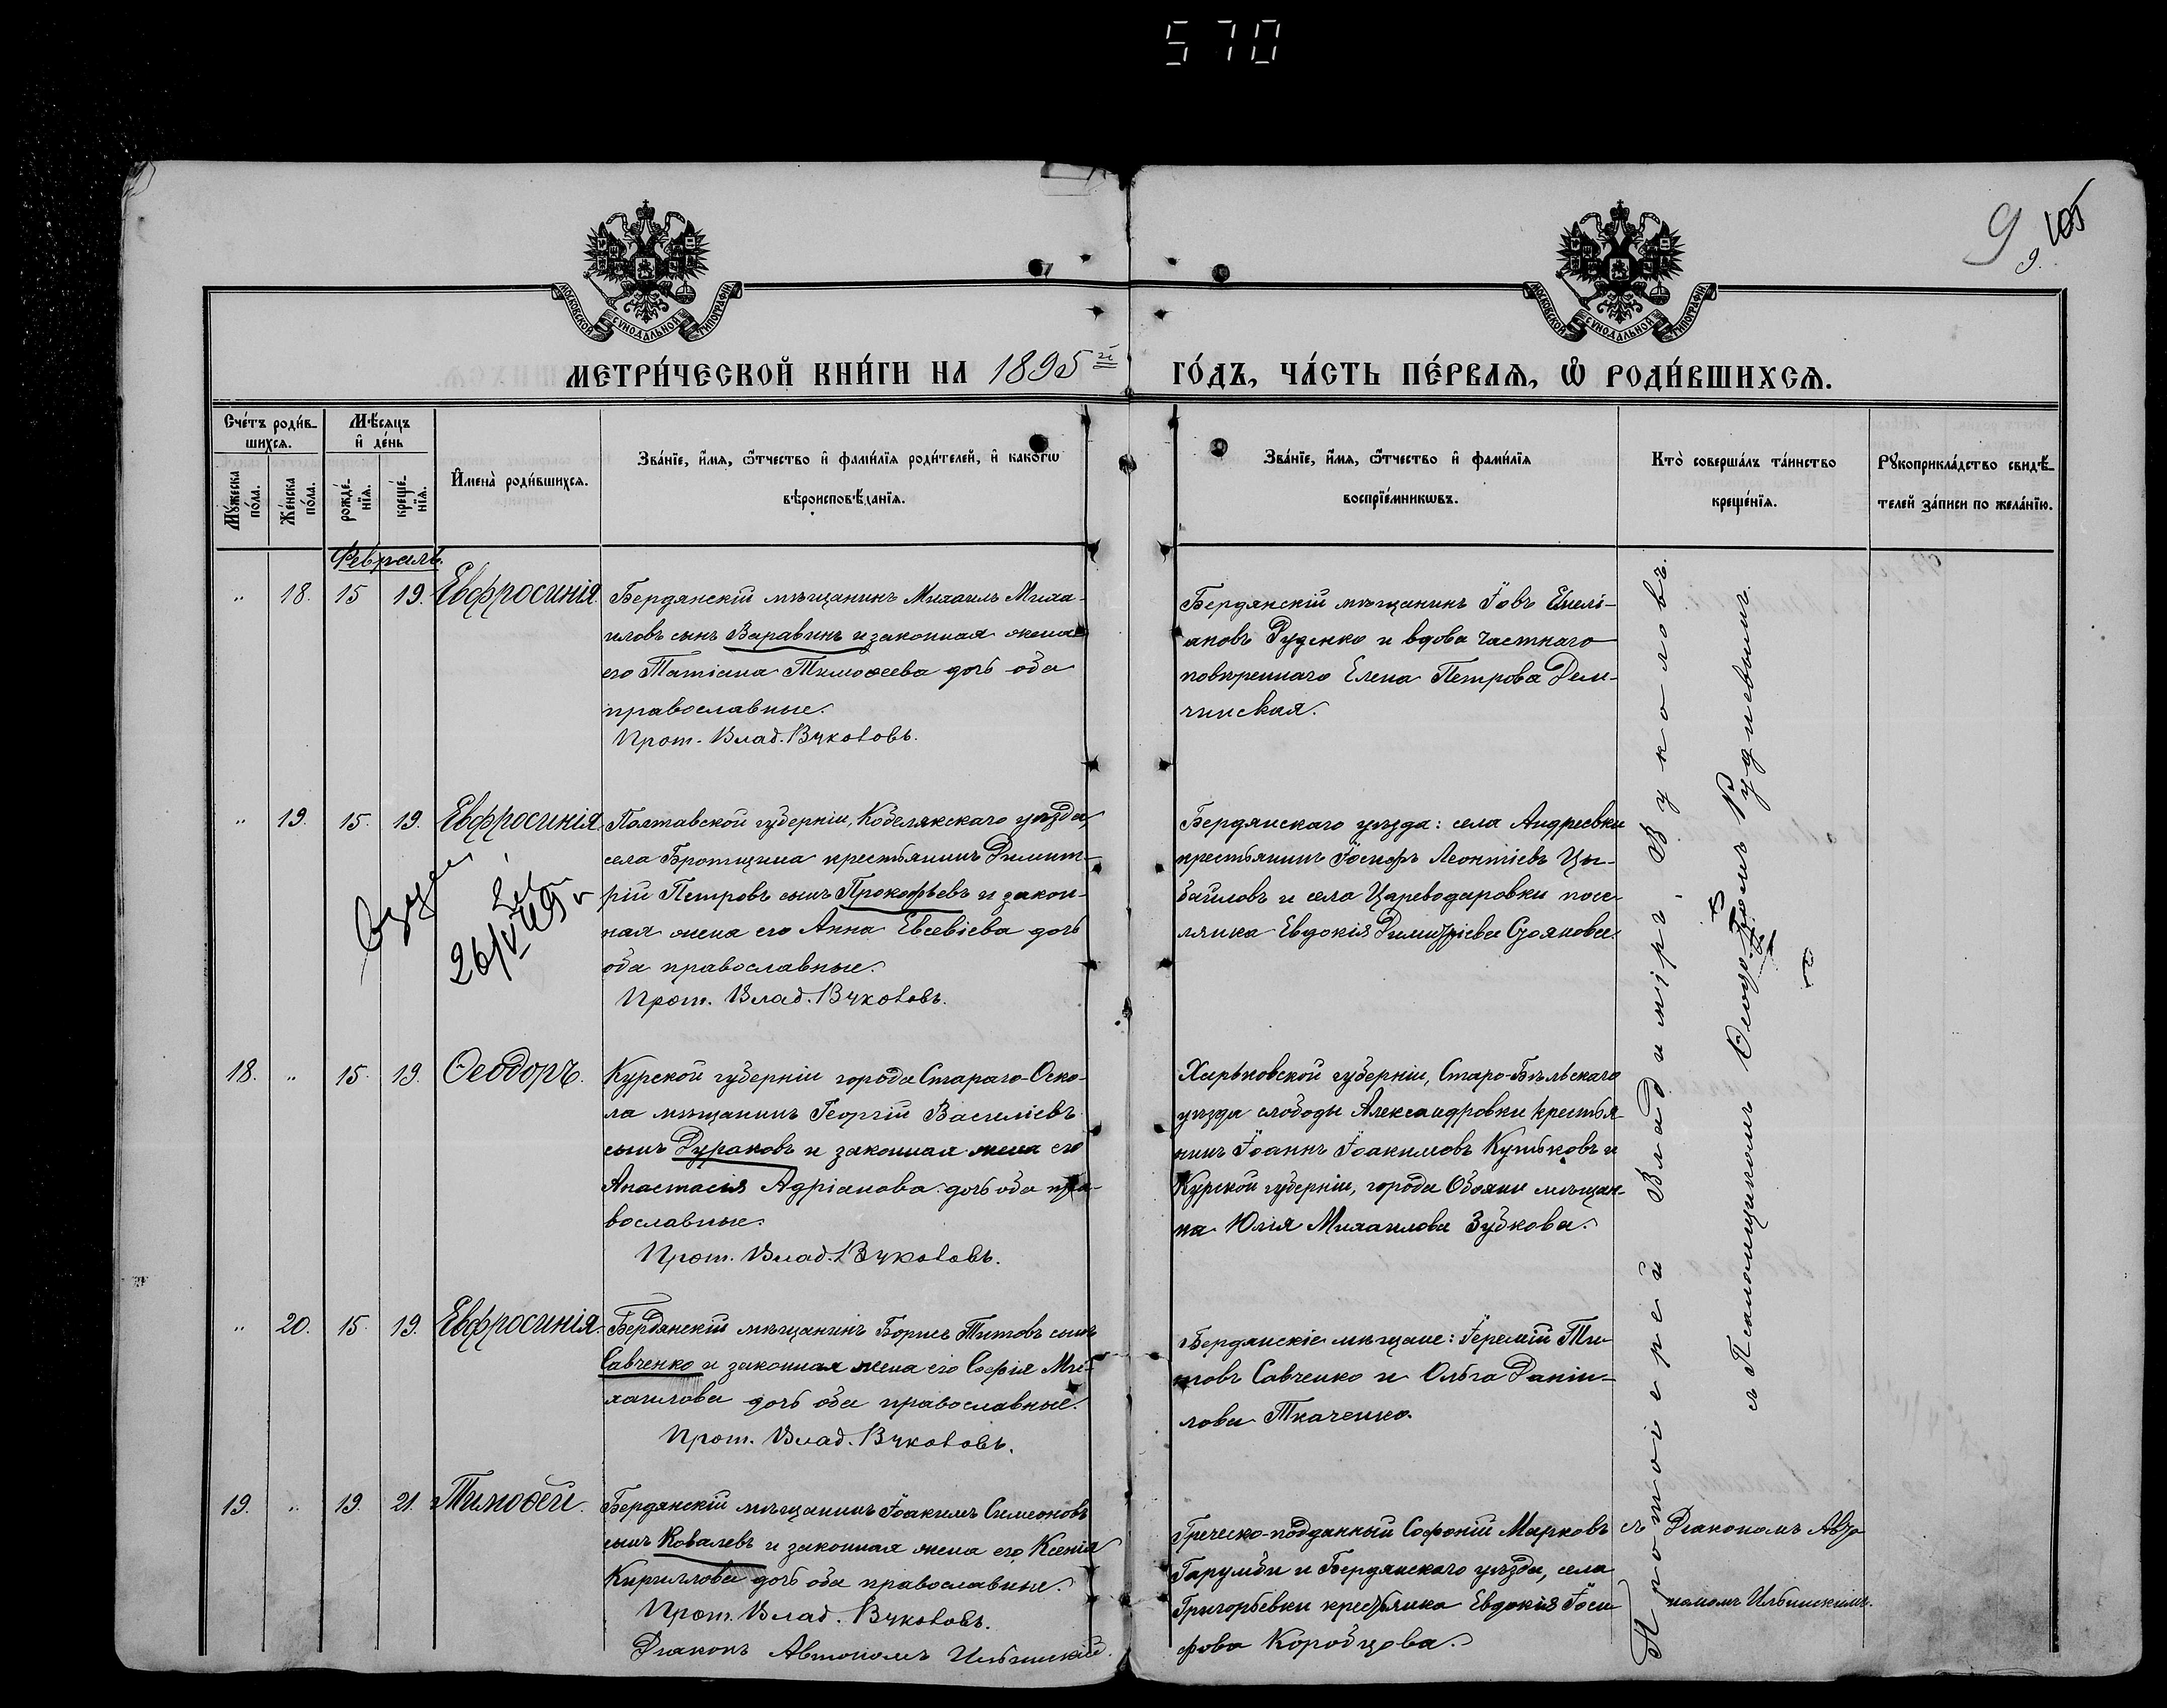 570
9
105
9.
МОСКОВСКОЙ СѴНОДАЛЬНОЙ ТИПОГРАФІИ
МОСКОВСКОЙ СѴНОДАЛЬНОЙ ТИПОГРАФІИ
МЕТРИ́ЧЕСКОЙ КНИ́ГИ НА 1895й ГО́ДЪ, ЧА́СТЬ ПЕ́РВАѦ, Ѡ РОДИ́ВШИХСѦ.
Сче́тъ роди́в-
шихсѧ.
Мѣ́сѧцъ
и де́нь
Мꙋ́жеска
по́ла.
Же́нска
по́ла.
рожде́-
нїѧ.
креще́-
нїѧ.
Имена̀ роди́вшихсѧ.
Зва́нїе, и́мѧ, ѻ҆́тчество и фами́лїѧ роди́телей, и како́гѡ
вѣроисповѣ́данїѧ.
Зва́нїе, и́мѧ, ѻ҆́тчество и фами́лїѧ
воспрїе́мникѡвъ.
Кто̀ соверша́лъ та́инство
креще́нїѧ.
Рꙋкоприкла́дство свидѣ́-
телей за́писи по жела́нїю.
Февраль.
" 18. 15 19. Евфросинія.
Бердянскій мѣщанинъ Михаилъ Миха-
иловъ сынъ Варавинъ и законная жена
его Татіана Тимоѳеева дочь оба
православные.
Прот. Влад. Вуколовъ.
Бердянскій мѣщанинъ Іовъ Емелі-
ановъ Руденко и вдова частнаго
повѣреннаго Елена Петрова Дем-
чинская.
" 19. 15. 19. Евфросинія.
26/V
Полтавской губерніи, Кобелякскаго уѣзда,
села Бротщина крестьянинъ Димит-
рій Петровъ сынъ Прокофьевъ и закон-
ная жена его Анна Евсевіева дочь
оба православные.
Прот. Влад. Вуколовъ.
Бердянскаго уѣзда: села Андреевки
крестьянинъ Іосифъ Леонтіевъ Цы-
байловъ и села Цареводаровки посе-
лянка Евдокія Димитріева Стоянова.
18. " 15. 19. Ѳеодоръ.
Курской губерніи города Стараго-Оско-
ла мѣщанинъ Георгій Василіевъ
сынъ Дураковъ и законная жена его
Анастасія Адріанова дочь оба пра-
вославные.
Прот. Влад. Вуколовъ.
Харьковской губерніи, Старо-Бѣльскаго
уѣзда слободы Александровки крестья-
нинъ Іоаннъ Іоакимовъ Кутьковъ и
Курской губерніи, города Обояни мѣщан-
ка Юлія Михаилова Зубкова.
" 20. 15. 19. Евфросинія.
Бердянскій мѣщанинъ Борисъ Титовъ сынъ
Савченко и законная жена его Софія Ми-
хаилова дочь оба православные.
Прот. Влад. Вуколовъ.
Бердянскіе мѣщане: Іеремій Ти-
товъ Савченко и Ольга Даніи-
лова Ткаченко.
19. " 19. 21. Тимоѳей.
Бердянскій мѣщанинъ Іоакимъ Симеоновъ
сынъ Ковалевъ и законная жена его Ксенія
Кириллова дочь оба православные.
Прот. Влад. Вуколовъ.
Діаконъ Автономъ Ильинскій.
Греческо-подданный Софоній Марковъ
Гарумби и Бердянскаго уѣзда, села
Григорьевки крестьянка Евдокія Іоси-
фова Коробцова.
Протоіерей Владиміръ Вуколовъ.
съ Псаломщикомъ Ѳеодоромъ Рудневымъ.
съ Діакономъ Авто-
номомъ Ильинскимъ.